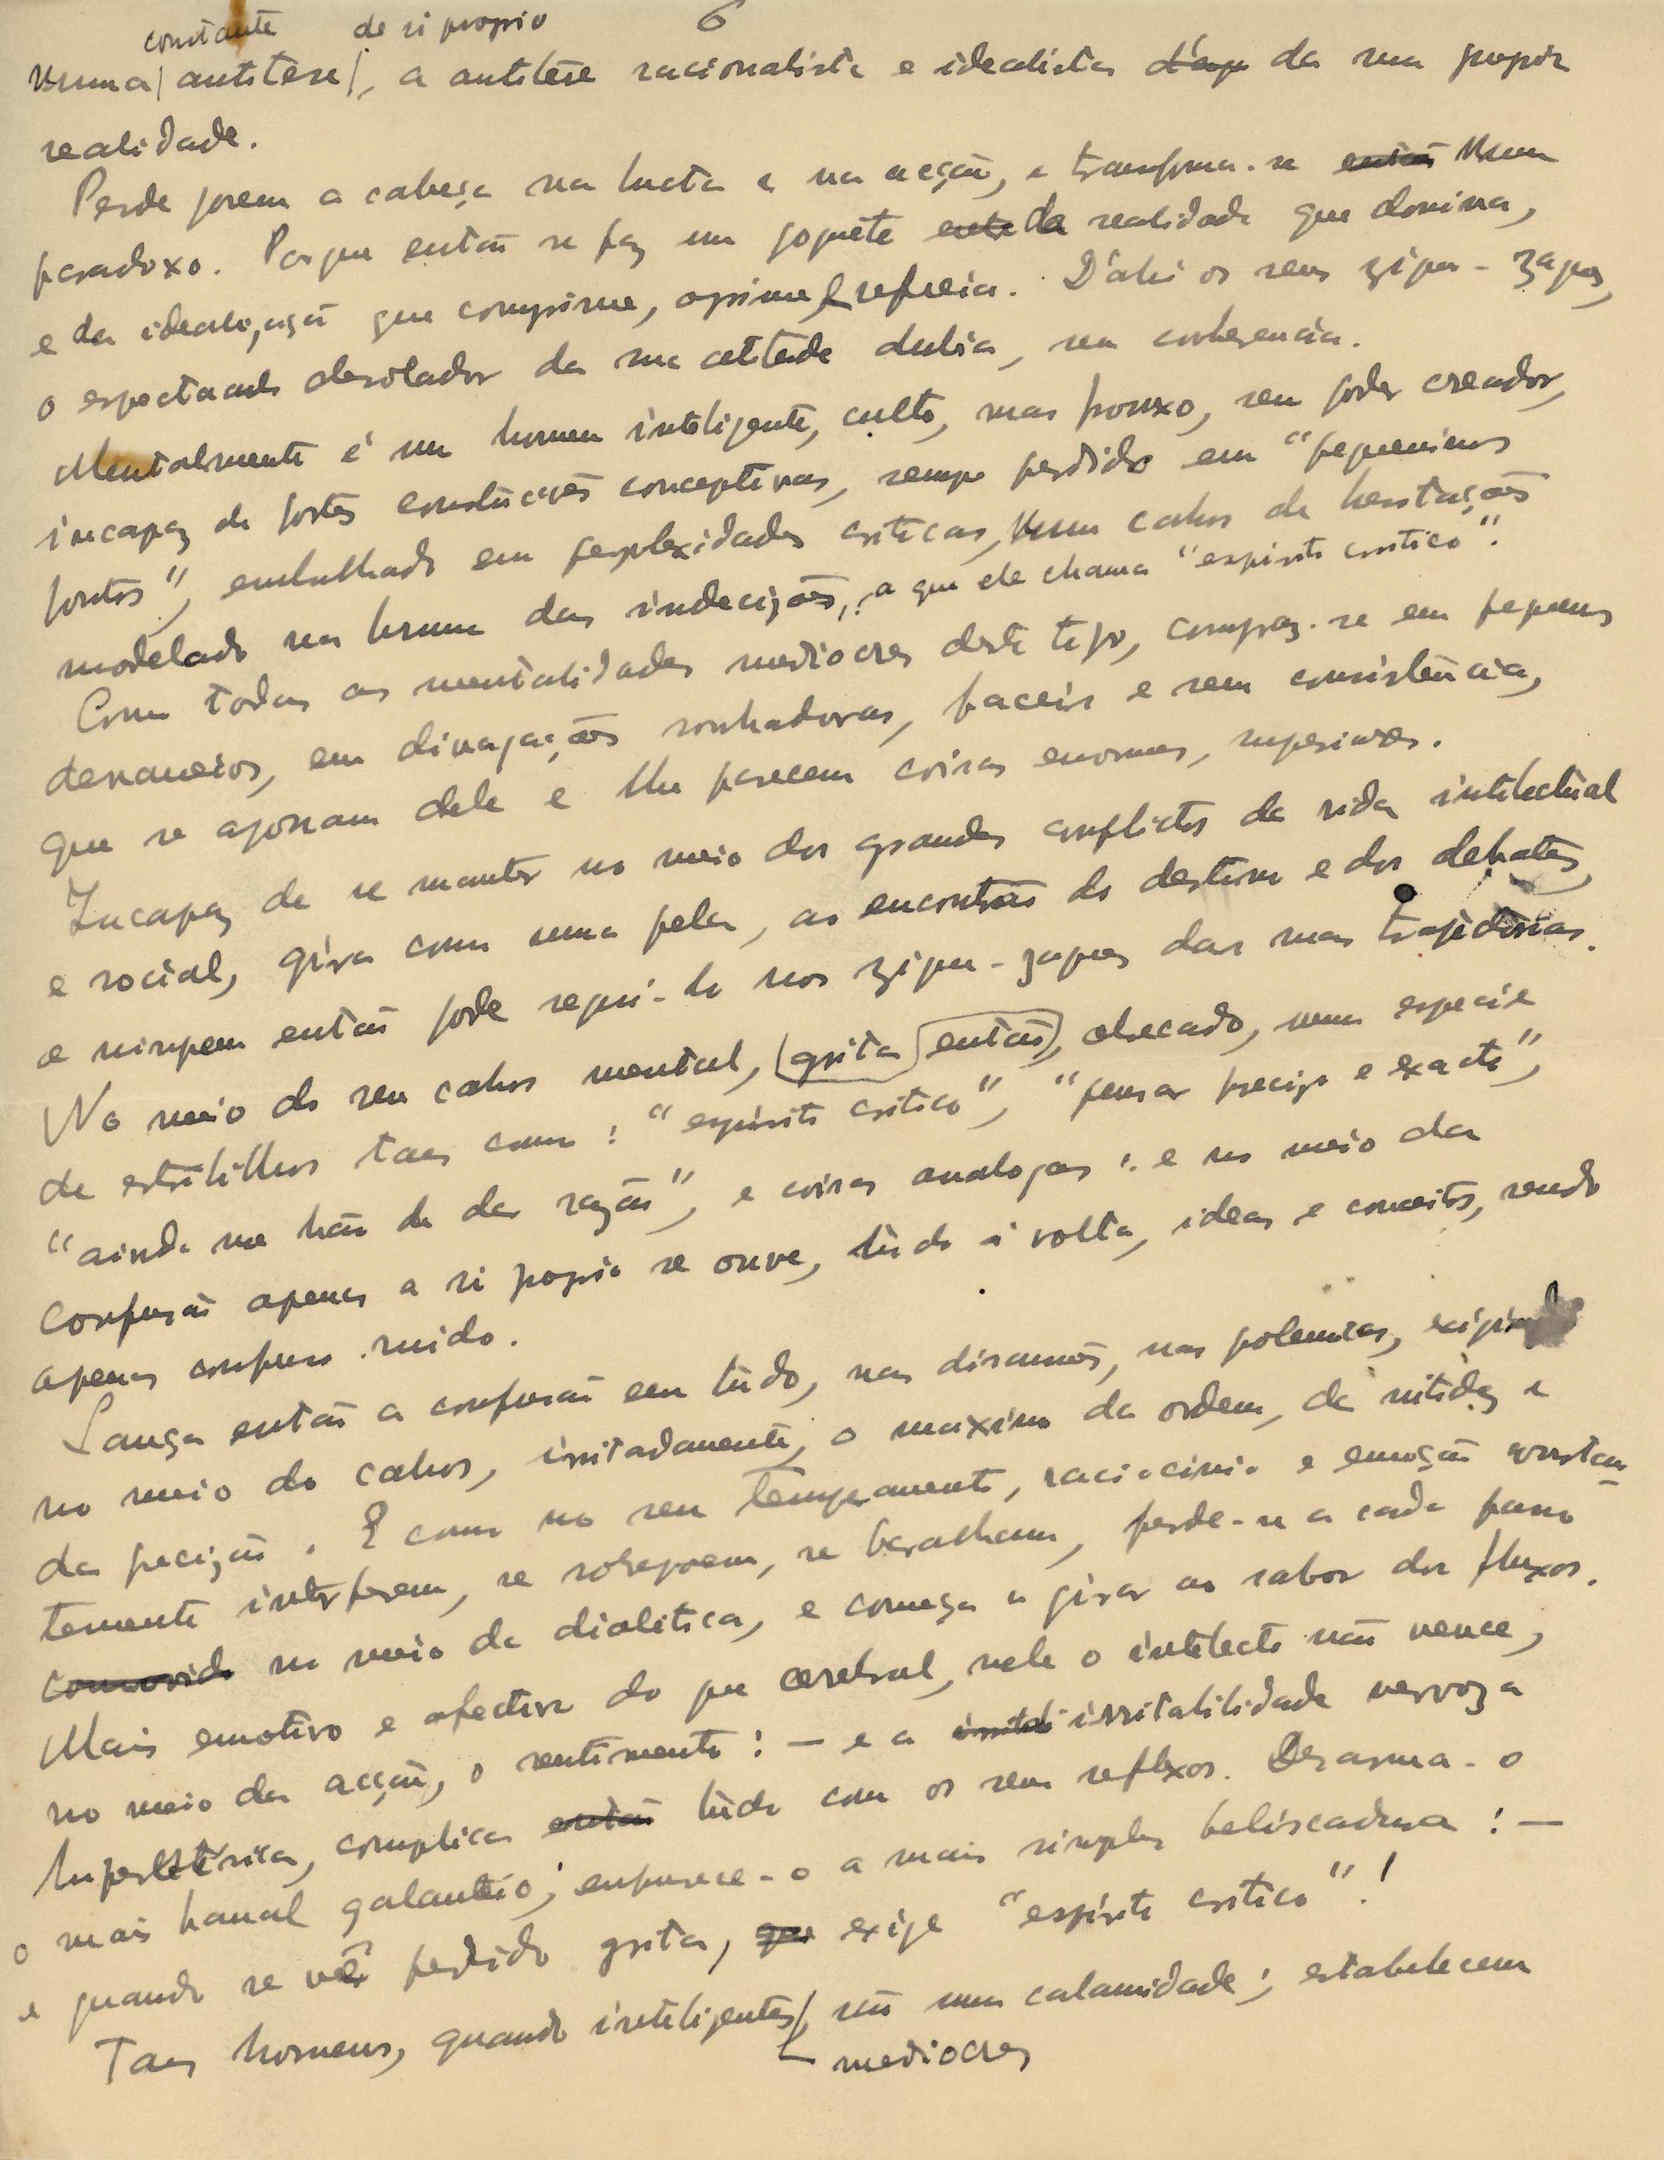 6
constante de si proprio
numa antitese, a antitese racionalista e idealista da sua propria
realidade.
Perde porem a cabeça na lucta e na acção, e transforma-se num
paradoxo. Porque então se faz um joguete da realidade que domina,
e da idealização que comprime, oprime e refreia. D'ahi os seus zigues-zagues,
o espectaculo desolador da sua attitude dubia, sem coherencia.
Mentalmente é um homem inteligente, culto, mas frouxo, sem poder creador,
incapaz de fortes construcções conceptivas, sempre perdido em "pequeninos
pontos", embrulhado em perplexidades criticas, num cahos de hesitações
modelado na bruma das indecizões, a que ele chama "espirito critico".
Como todas as mentalidades mediocres deste tipo, compraz-se em pequenos
devaneios, em divagações sonhadoras, faceis e sem consistência,
que se apossam dele e lhe parecem coisas enormes, superiores.
Incapaz de se manter no meio dos grandes conflictos da vida intelectual
e social, gira como uma pela, ao encontrão do destino e dos debates,
e ninguem então pode segui-lo nos zigue-zagues das suas trajectorias.
No meio do seu cahos mental, grita então, obcecado, uma especie
de estribilhos taes como: "espirito critico", "pensar preciso e exacto",
"ainda me hão de dar razão", e coisas analogas: e no meio da
confusão apenas a si proprio se ouve, tudo á volta, ideas e conceitos, sendo
apenas confuso ruido.
Lança então a confusão em tudo, nas discussões, nas polemicas, exigindo
no meio do cahos, irritadamente, o maximo da ordem, da nitidez e
da precizão. E como no seu temperamento, raciocinio e emoção constan-
temente interferem, se sobrepoem, se baralham, perde-se a cada passo
comovido no meio da dialitica, e começa a girar ao sabor dos fluxos.
Mais emotivo e afectivo do que cerebral, nele o intelecto não vence,
no meio da acção, o sentimento: — e a irritabilidade nervoza
complica então tudo com os seus reflexos. Desarma-o
o mais banal galanteio; enfurece-o a mais simples beliscadura: —
e quando se vê perdido grita, exige "espirito critico"!
Taes homens, quando inteligentes, são uma calamidade; estabelecem
mediocres